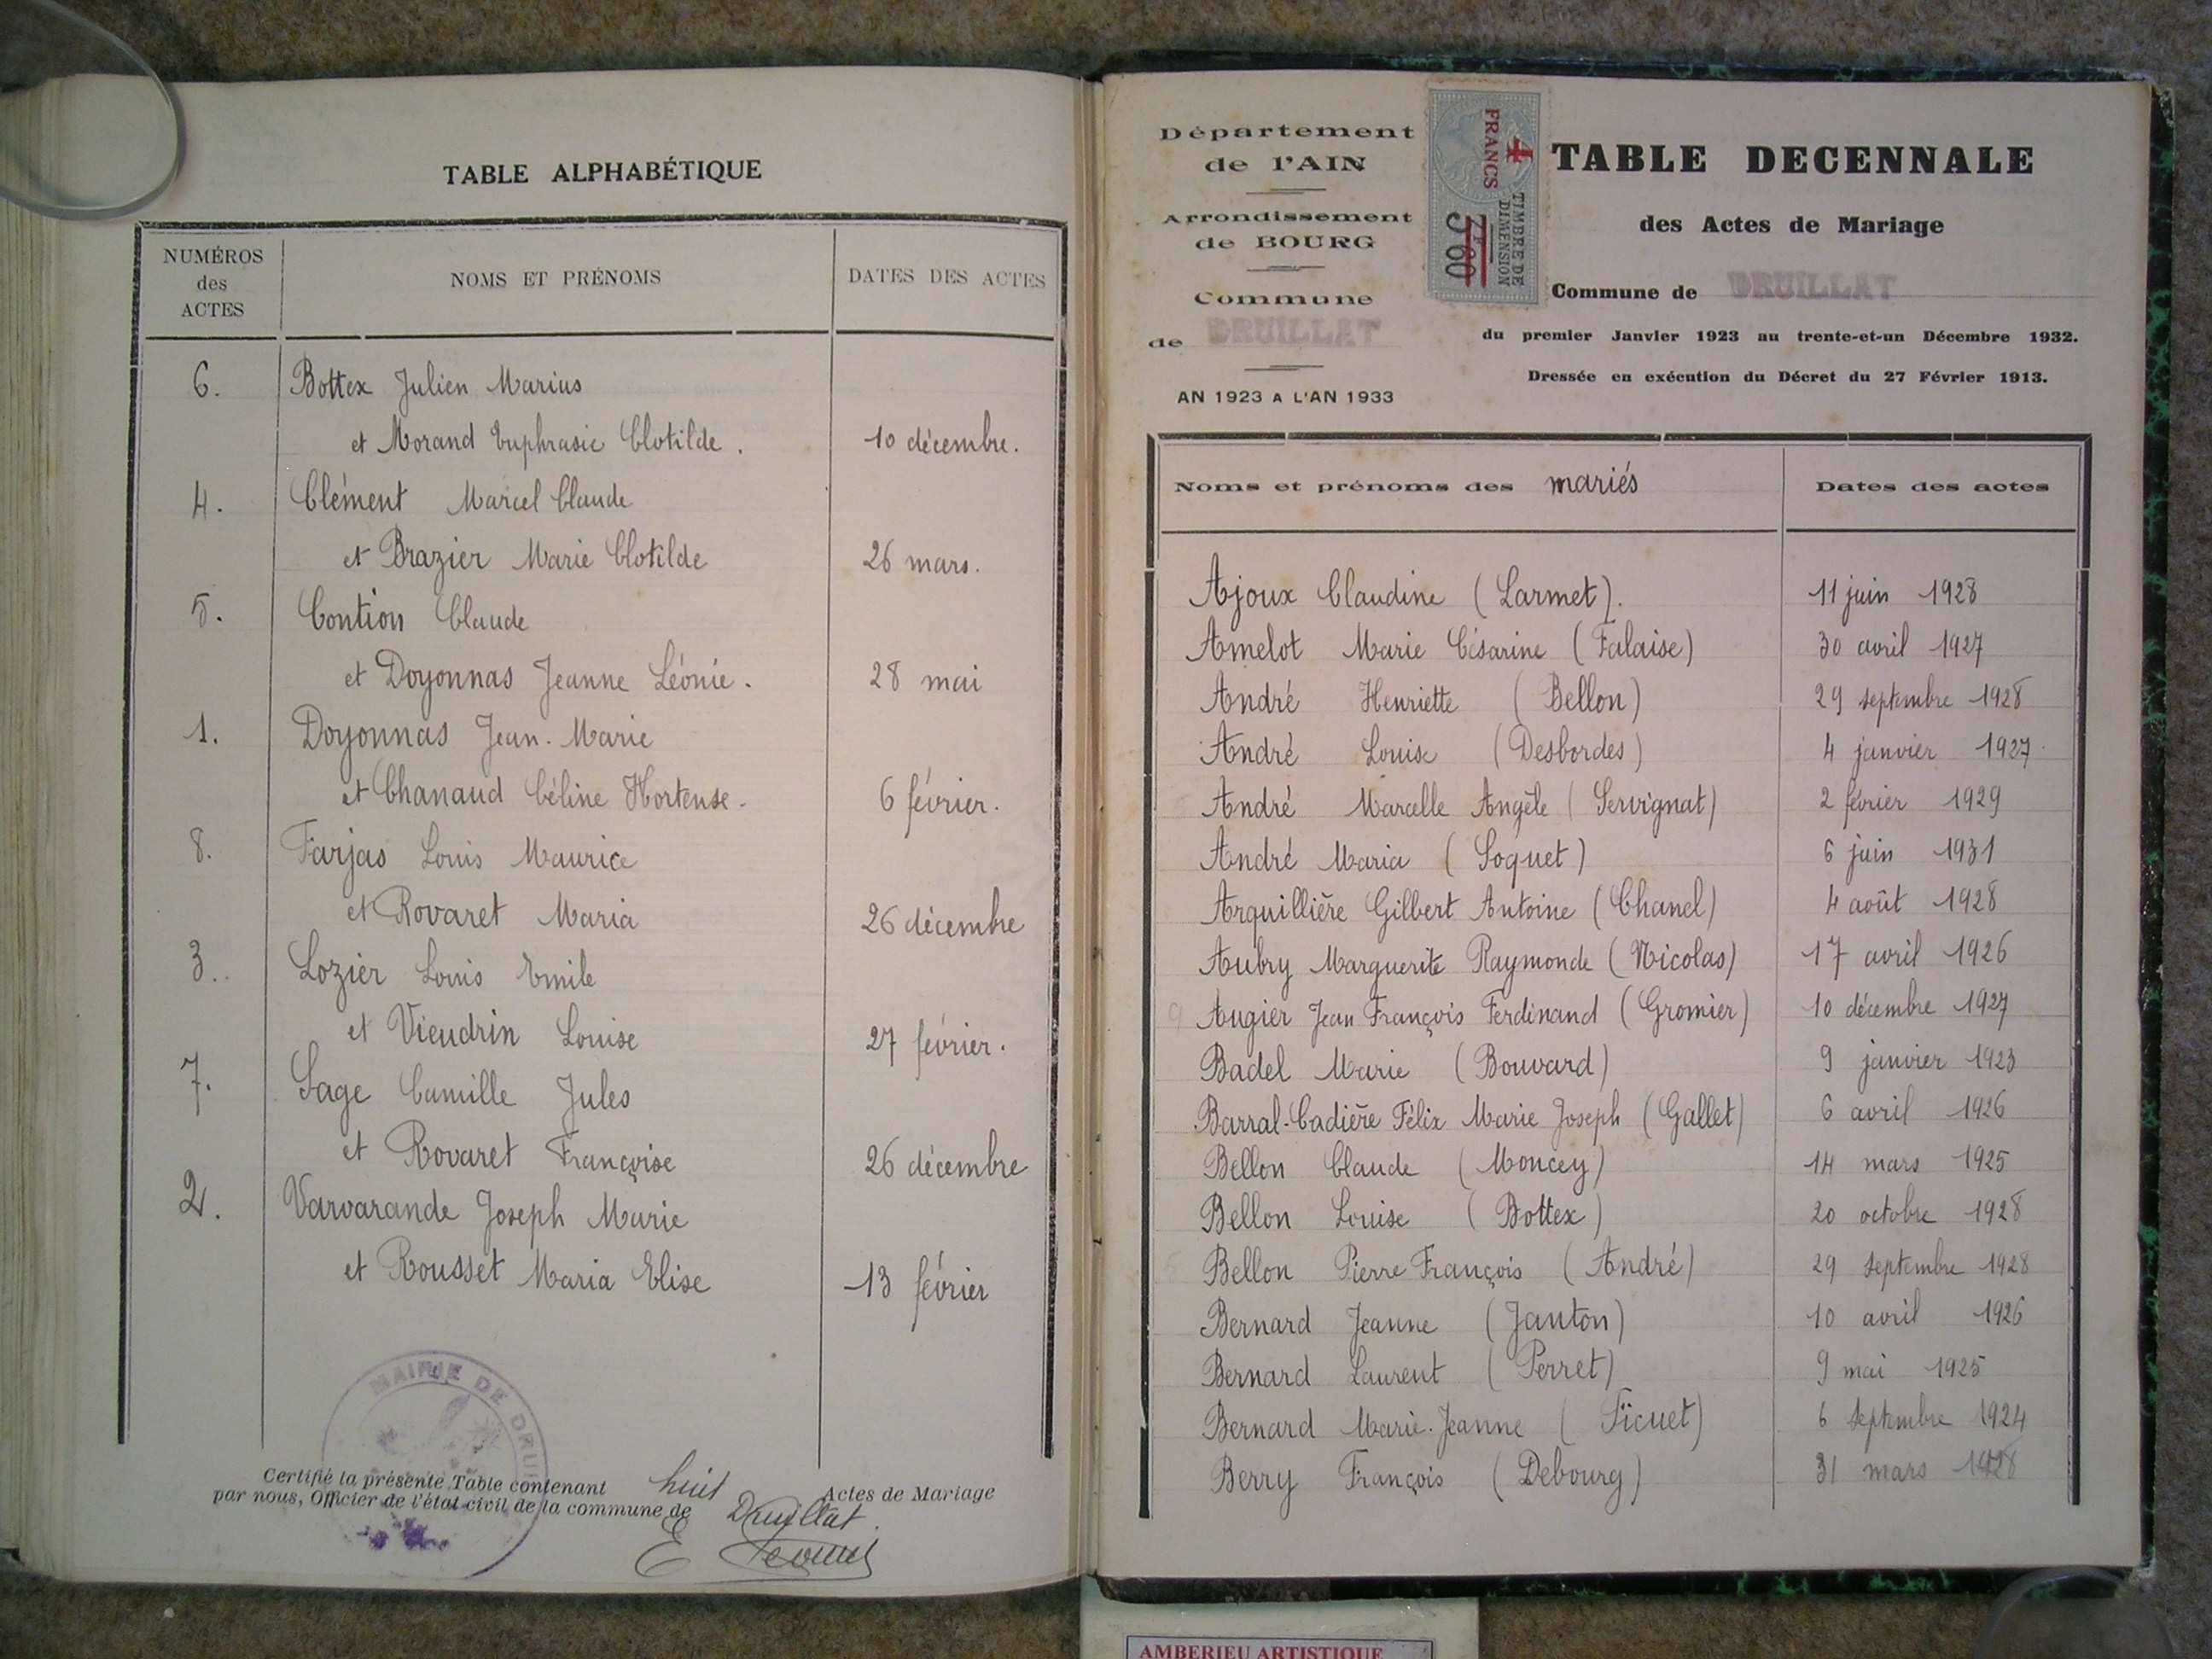 TABLE ALPHABÉTIQUE
NUMÉROS
des
ACTES
NOMS ET PRÉNOMS
DATES DES ACTES
6. Bottex Julien Marius
et Morand Euphrasie Clotilde. 10 décembre.
4. Clément Marcel Claude
et Brazier Marie Clotilde 26 mars.
5. Contion Claude
et Doyonnas Jeanne Léonie. 28 mai
1. Doyonnas Jean-Marie
et Chanaud Céline Hortense. 6 février.
8. Farjas Louis Maurice
et Rovaret Maria 26 décembre
3. Lozier Louis Emile
et Vieudrin Louise 27 février.
7. Sage Camille Jules
et Rovaret Françoise 26 décembre
2. Varvarande Joseph Marie
et Rousset Maria Elise 13 février
MAIRIE DE DRUI
Certifié la présente Table contenant huit Actes de Mariage
par nous, Officier de l'état-civil de la commune de Druillat.
Département
de l'AIN
Arrondissement
de BOURG
Commune
de DRUILLAT
AN 1923 A L'AN 1933
4
FRANCS
TIMBRE DE
DIMENSION
TABLE DECENNALE
des Actes de Mariage
Commune de DRUILLAT
du premier Janvier 1923 au trente-et-un Décembre 1932.
Dressée en exécution du Décret du 27 Février 1913.
Noms et prénoms des mariés Dates des actes
Ajoux Claudine (Larmet). 11 juin 1928
Amelot Marie Césarine (Falaise) 30 avril 1927
André Henriette (Bellon) 29 septembre 1928
André Louise (Desbordes) 4 janvier 1927
André Marcelle Angèle (Servignat) 2 février 1929
André Maria (Soquet) 6 juin 1931
Arquillière Gilbert Antoine (Chanel) 4 août 1928
Aubry Marguerite Raymonde (Nicolas) 17 avril 1926
Augier Jean François Ferdinand (Gromier) 10 décembre 1927
Badel Marie (Bouvard) 9 janvier 1923
Barral-Cadière Félix Marie Joseph (Gallet) 6 avril 1926
Bellon Claude (Moncey) 14 mars 1925
Bellon Louise (Bottex) 20 octobre 1928
Bellon Pierre François (André) 29 septembre 1928
Bernard Jeanne (Janton) 10 avril 1926
Bernard Laurent (Perret) 9 mai 1925
Bernard Marie-Jeanne 6 septembre 1924
Berry François (Debourg) 31 mars 1928
AMBERIEU ARTISTIQUE